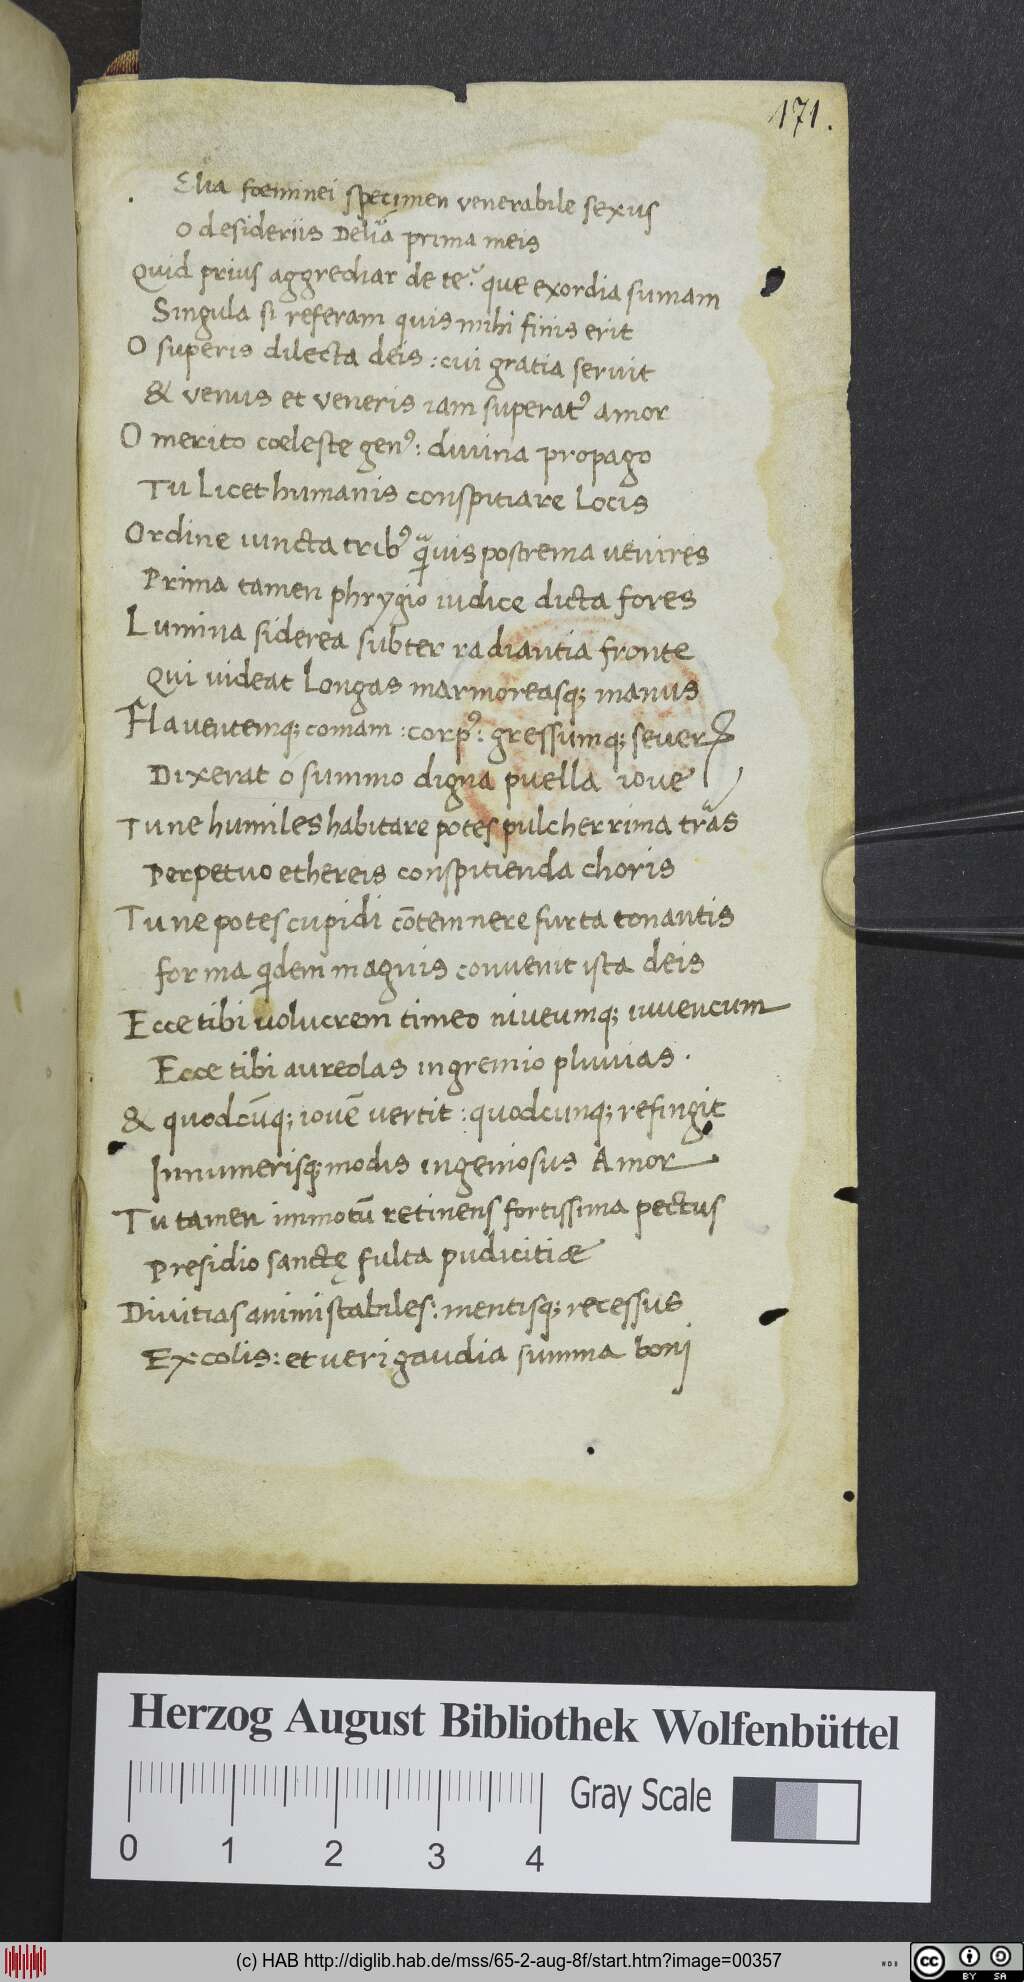 171.
Elia foeminei specimen venerabile sexus
O desideriis Delia prima meis
Quid prius aggrediar de te? que exordia sumam
Singula si referam quis mihi finis erit
O superis dilecta deis: cui gratia servit
& venus et veneris iam superatꝰ amor
O merito coeleste genꝰ: divina propago
Tu Licet humanis conspitiare Locis
Ordine iuncta tribꝰ qᵃuis postrema uenires
Prima tamen phrygio iudice dicta fores
Lumina siderea subter radiantia fronte
Qui uideat Longas marmoreasq; manus
Flauentemq; comam: corpꝰ: gressumq; severꝝ
Dixerat o summo digna puella iove
Tu ne humiles habitare potes pulcherrima trãs
Perpetuo ethereis conspitienda choris
Tu ne potes cupidi cōtemnere furta tonantis
forma qͥdem magnis convenit ista deis
Ecce tibi volucrem timeo niveumq; iuvencum
Ecce tibi aureolas in gremio pluuias.
& quodcūq; iovē vertit: quodcunq; refingit
Innumerisq; modis ingeniosus Amor
Tu tamen immotū retinens fortissima pectus
Presidio sanctę fulta pudicitiæ
Divitias animi stabiles: mentisq; recessus
Excolis: et veri gaudia summa bonj
Herzog August Bibliothek Wolfenbüttel
Gray Scale
0 1 2 3 4
(c) HAB http://diglib.hab.de/mss/65-2-aug-8f/start.htm?image=00357
cc BY SA